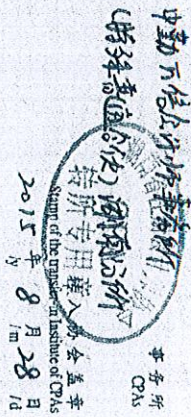 中勤万信会计师事务所
(特殊普通合伙) 分所
事务所
CPAs
转所专用章
转入协会盖章
Stamp of the transfer-in Institute of CPAs
2015 年 8 月 28 日
/y /m /d